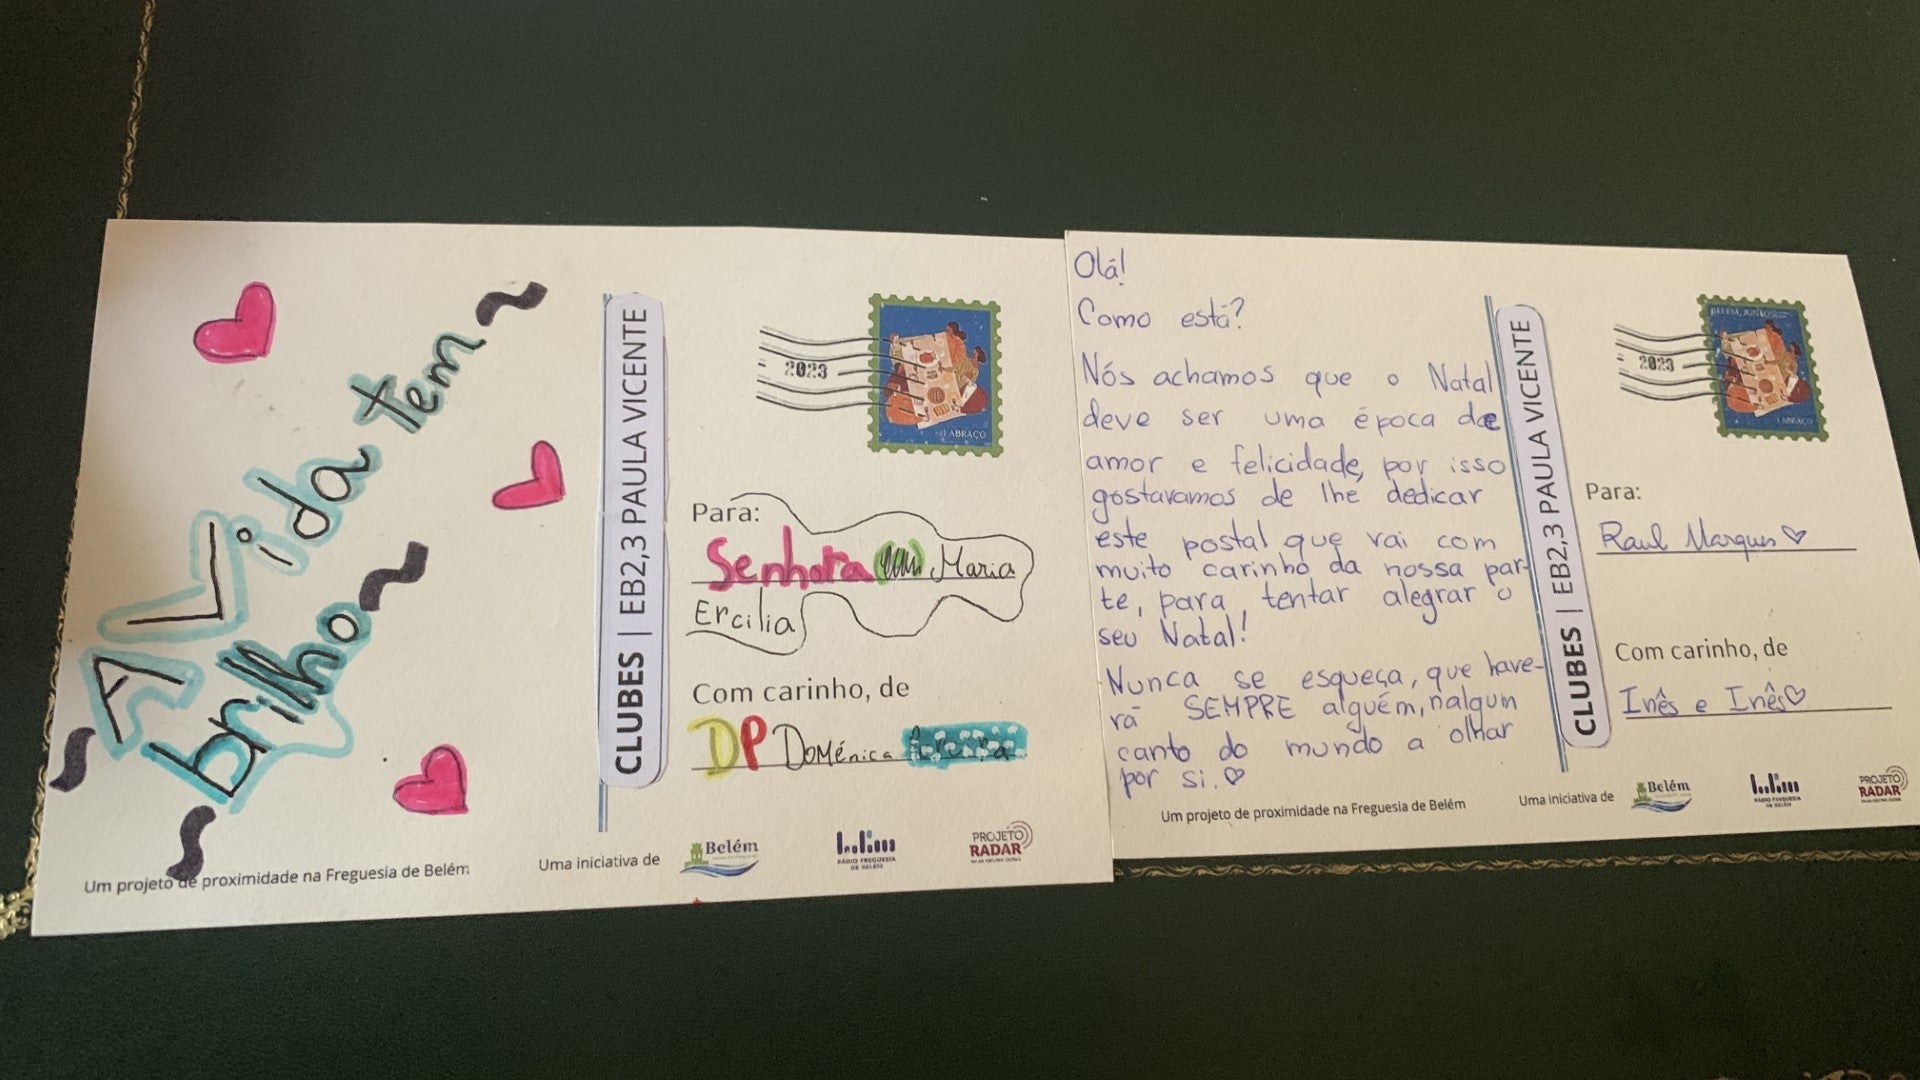 A Vida tem
brilho
CLUBES | EB2,3 PAULA VICENTE
2023
1 ABRAÇO
Para:
Senhora Maria
Ercilia
Com carinho, de
DP Doménica
Um projeto de proximidade na Freguesia de Belém
Uma iniciativa de
Belém
RÁDIO FREGUESIA
DE BELÉM
PROJETO
RADAR
Olá!
Como está?
Nós achamos que o Natal
deve ser uma época de
amor e felicidade, por isso
gostavamos de lhe dedicar
este postal que vai com
muito carinho da nossa par-
te, para, tentar alegrar o
seu Natal!
Nunca se esqueça, que have-
rá SEMPRE alguém, nalgum
canto do mundo a olhar
por si.
CLUBES | EB2,3 PAULA VICENTE
2023
BELÉM, JUNTOS!
1 ABRAÇO
Para:
Raul Marques
Com carinho, de
Inês e Inês
Um projeto de proximidade na Freguesia de Belém
Uma iniciativa de
Belém
RÁDIO FREGUESIA
DE BELÉM
PROJETO
RADAR